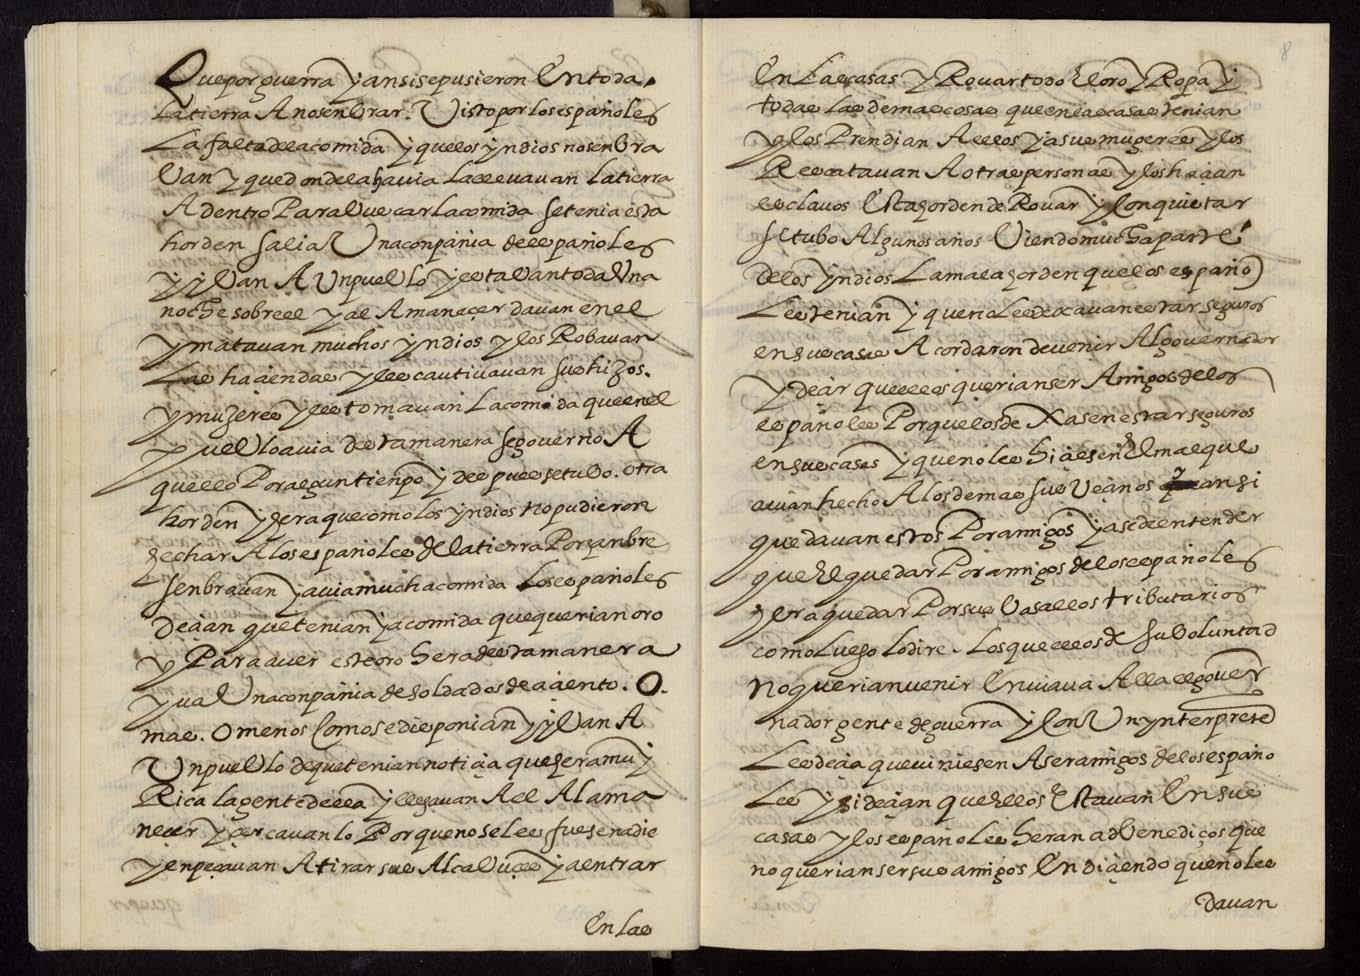 Que por guerra y ansi se pusieron En toda
La tierra A no senbrar. Visto por los españoles
La falta de la comida y que los yndios no senbra
Van y que donde la havia La llevavan la tierra
A dentro Para Buscar La comida se tenia esta
horden salia Una conpañia de españoles
y yVan A Un pueblo y estaban toda Una
noche sobre el y al Amaneçer davan en el
y matavan muchos yndios y los Robavan
Las haçiendas y les cautivavan sus hijos.
y mugeres y les tomavan La comida que en el
pueblo avia desta manera se governo A
quello Por algun tienpo y despues se tubo. otra
horden y hera que como los yndios no pudieron
hechar A los españoles de la tierra Por hanbre
senbravan y avia mucha comida Los españoles
Deçian que tenian ya comida que querian oro
y Para aver este oro hera desta manera
yva Una conpañia de soldados de a çiento. O.
mas. O menos Como se disponian y yVan A
Un pueblo de que tenian notiçia que hera muy
Rica la gente de ella y llegavan A el Al ama
neçer y çercavan lo Por que no se les fuese nadie
y enpeçavan A tirar sus Alcabuçes y a entrar
En Las
8
En Las casas y Rovar todo El oro y Ropa y
todas las demas cosas que en las casas tenian
y los Prendian A ellos y a sus mugeres y los
Rescatavan A otras personas y los haçian
esclavos Esta horden de Rovar y Conquistar
se tubo Algunos años Viendo mucha parte
de los yndios La mala horden que los españo
Les tenian y que no les dexavan estar seguros
en sus casas Acordaron de venir Al governador
y deçir que ellos querian ser Amigos de los
españoles Porque los dexasen estar seguros
en sus casas y que no les hiçiesen El mal que
avian hecho A los demas sus Veçinos y ansi
quedavan estos Por amigos y ase de entender
que El quedar Por amigos de los españoles
hera quedar Por sus Vasallos tributarios
como Luego lo dire. Los que ellos de su Voluntad
No querian venir Enviava Alla el gover
nador gente de guerra y Con Un ynterprete
Les deçia que viniesen A ser amigos de los españo
Les y si deçian que Ellos Estavan En sus
casas y los españoles heran advenediços que
no querian ser sus amigos En diçiendo que no les
Davan